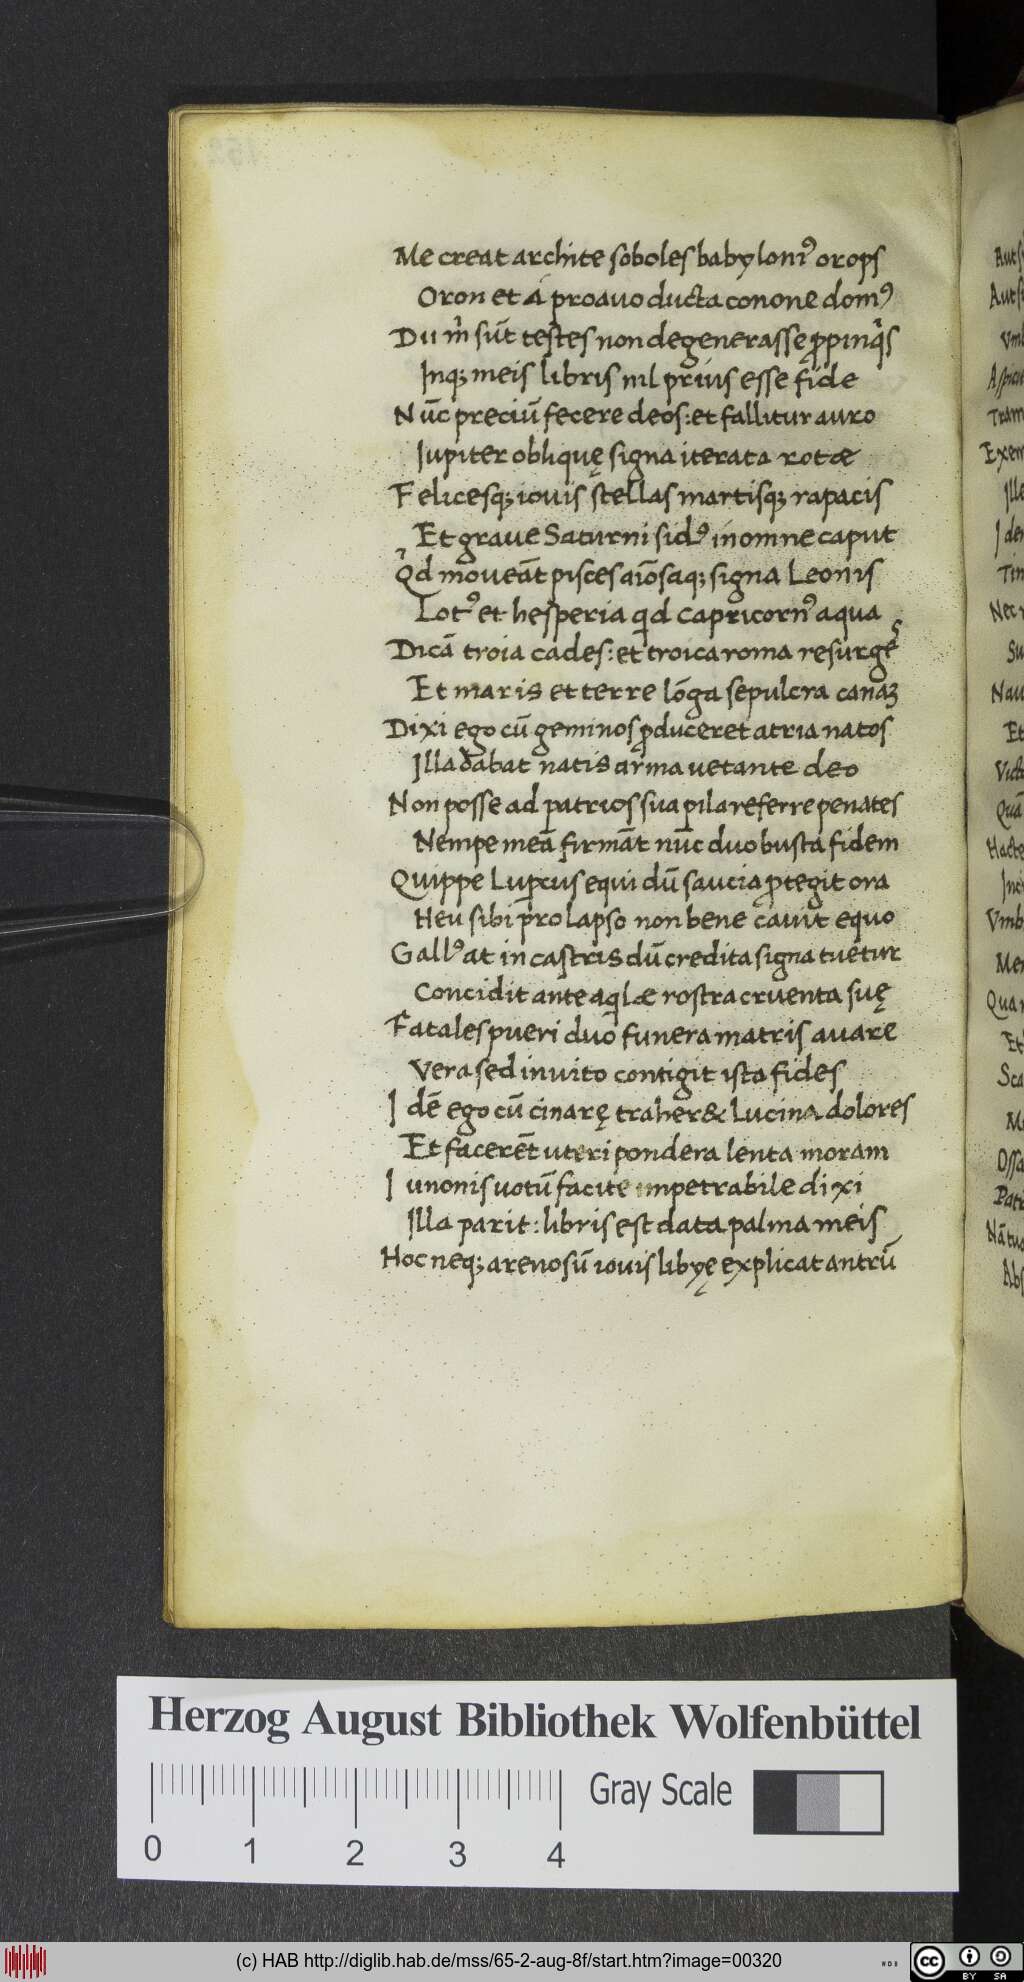 Me creat archite soboles babyloniꝰ orops
Oron et á proauo ducta conone domꝰ
Dii m̃ sũt testes non degenerasse ꝓpinq̃s
Inqꝫ meis libris nil prius esse fide
Nũc preciũ fecere deos: et fallitur auro
Iupiter obliquę signa iterata rotæ
Felicesqꝫ iouis stellas martisqꝫ rapacis
Et graue Saturni sidꝰ in omne caput
Qd moueãt pisces aiõsaqꝫ signa Leonis
Lotꝰ et hesperia qd capricornꝰ aqua
Dicã troia cades: et troica roma resurges
Et maris et terre lõga sepulcra canaꝫ
Dixi ego cũ geminos ꝓduceret atria natos
Illa dabat natis arma uetante deo
Non posse ad patrios sua pila referre penates
Nempe meã firmãt nũc duo busta fidem
Quippe Lupcus equi dũ saucia ꝓtegit ora
Heu sibi prolapso non bene cauit equo
Gallꝰ at in castris dũ credita signa tuetur
Concidit ante aqlæ rostra cruenta suę
Fatales pueri duo funera matris auare
Vera sed inuito contigit ista fides
Idẽ ego cũ cinarę traher& Lucina dolores
Et facerẽt uteri pondera lenta moram
Iunonis uotũ facite impetrabile dixi
Illa parit: libris est data palma meis
Hoc neqꝫ arenosũ iouis libyę explicat antrũ
Herzog August Bibliothek Wolfenbüttel
Gray Scale
0 1 2 3 4
(c) HAB http://diglib.hab.de/mss/65-2-aug-8f/start.htm?image=00320
cc BY SA